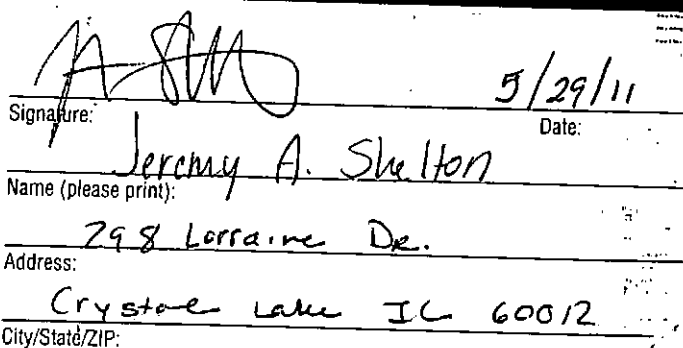 5/29/11
Signature: Date:
Jeremy A. Shelton
Name (please print):
298 Lorraine Dr.
Address:
Crystal Lake IL 60012
City/State/ZIP: